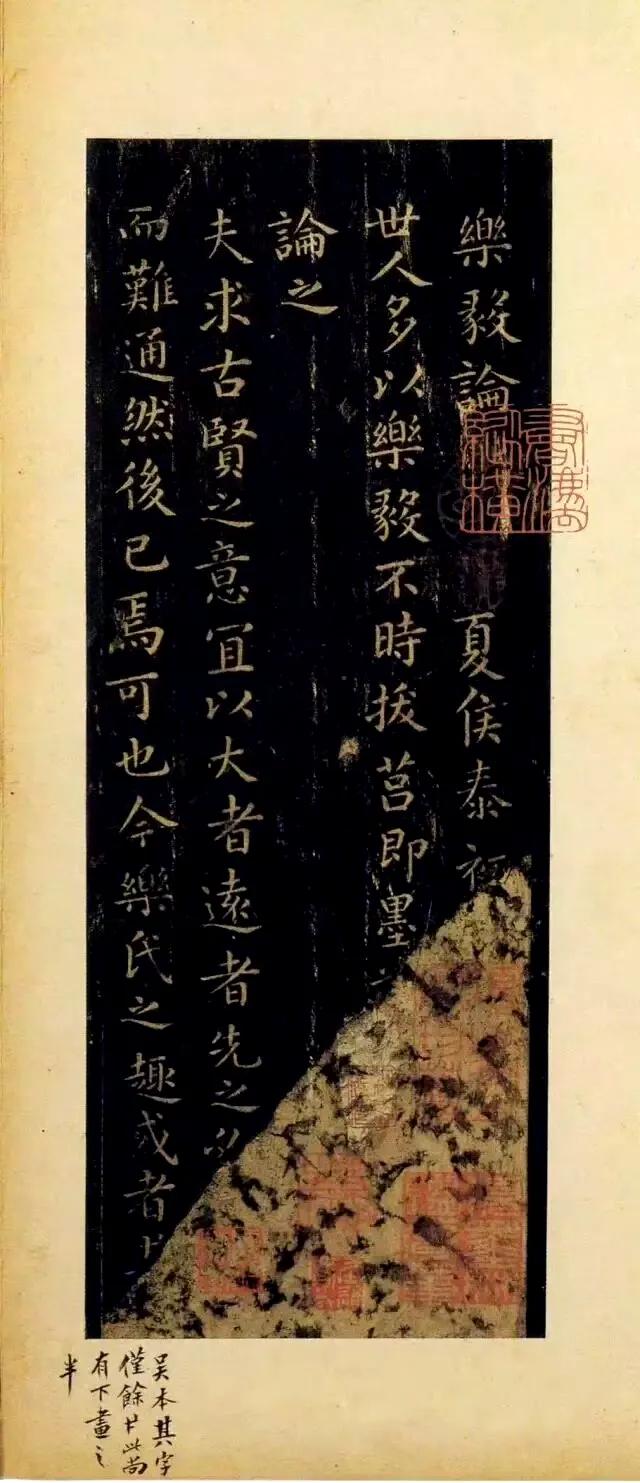 樂毅論 夏侯泰初
世人多以樂毅不時拔莒即墨
論之
夫求古賢之意宜以大者遠者先之
而難通然後已焉可也今樂氏之趣或者
吳本其字
僅餘此尚
有下畫之
半